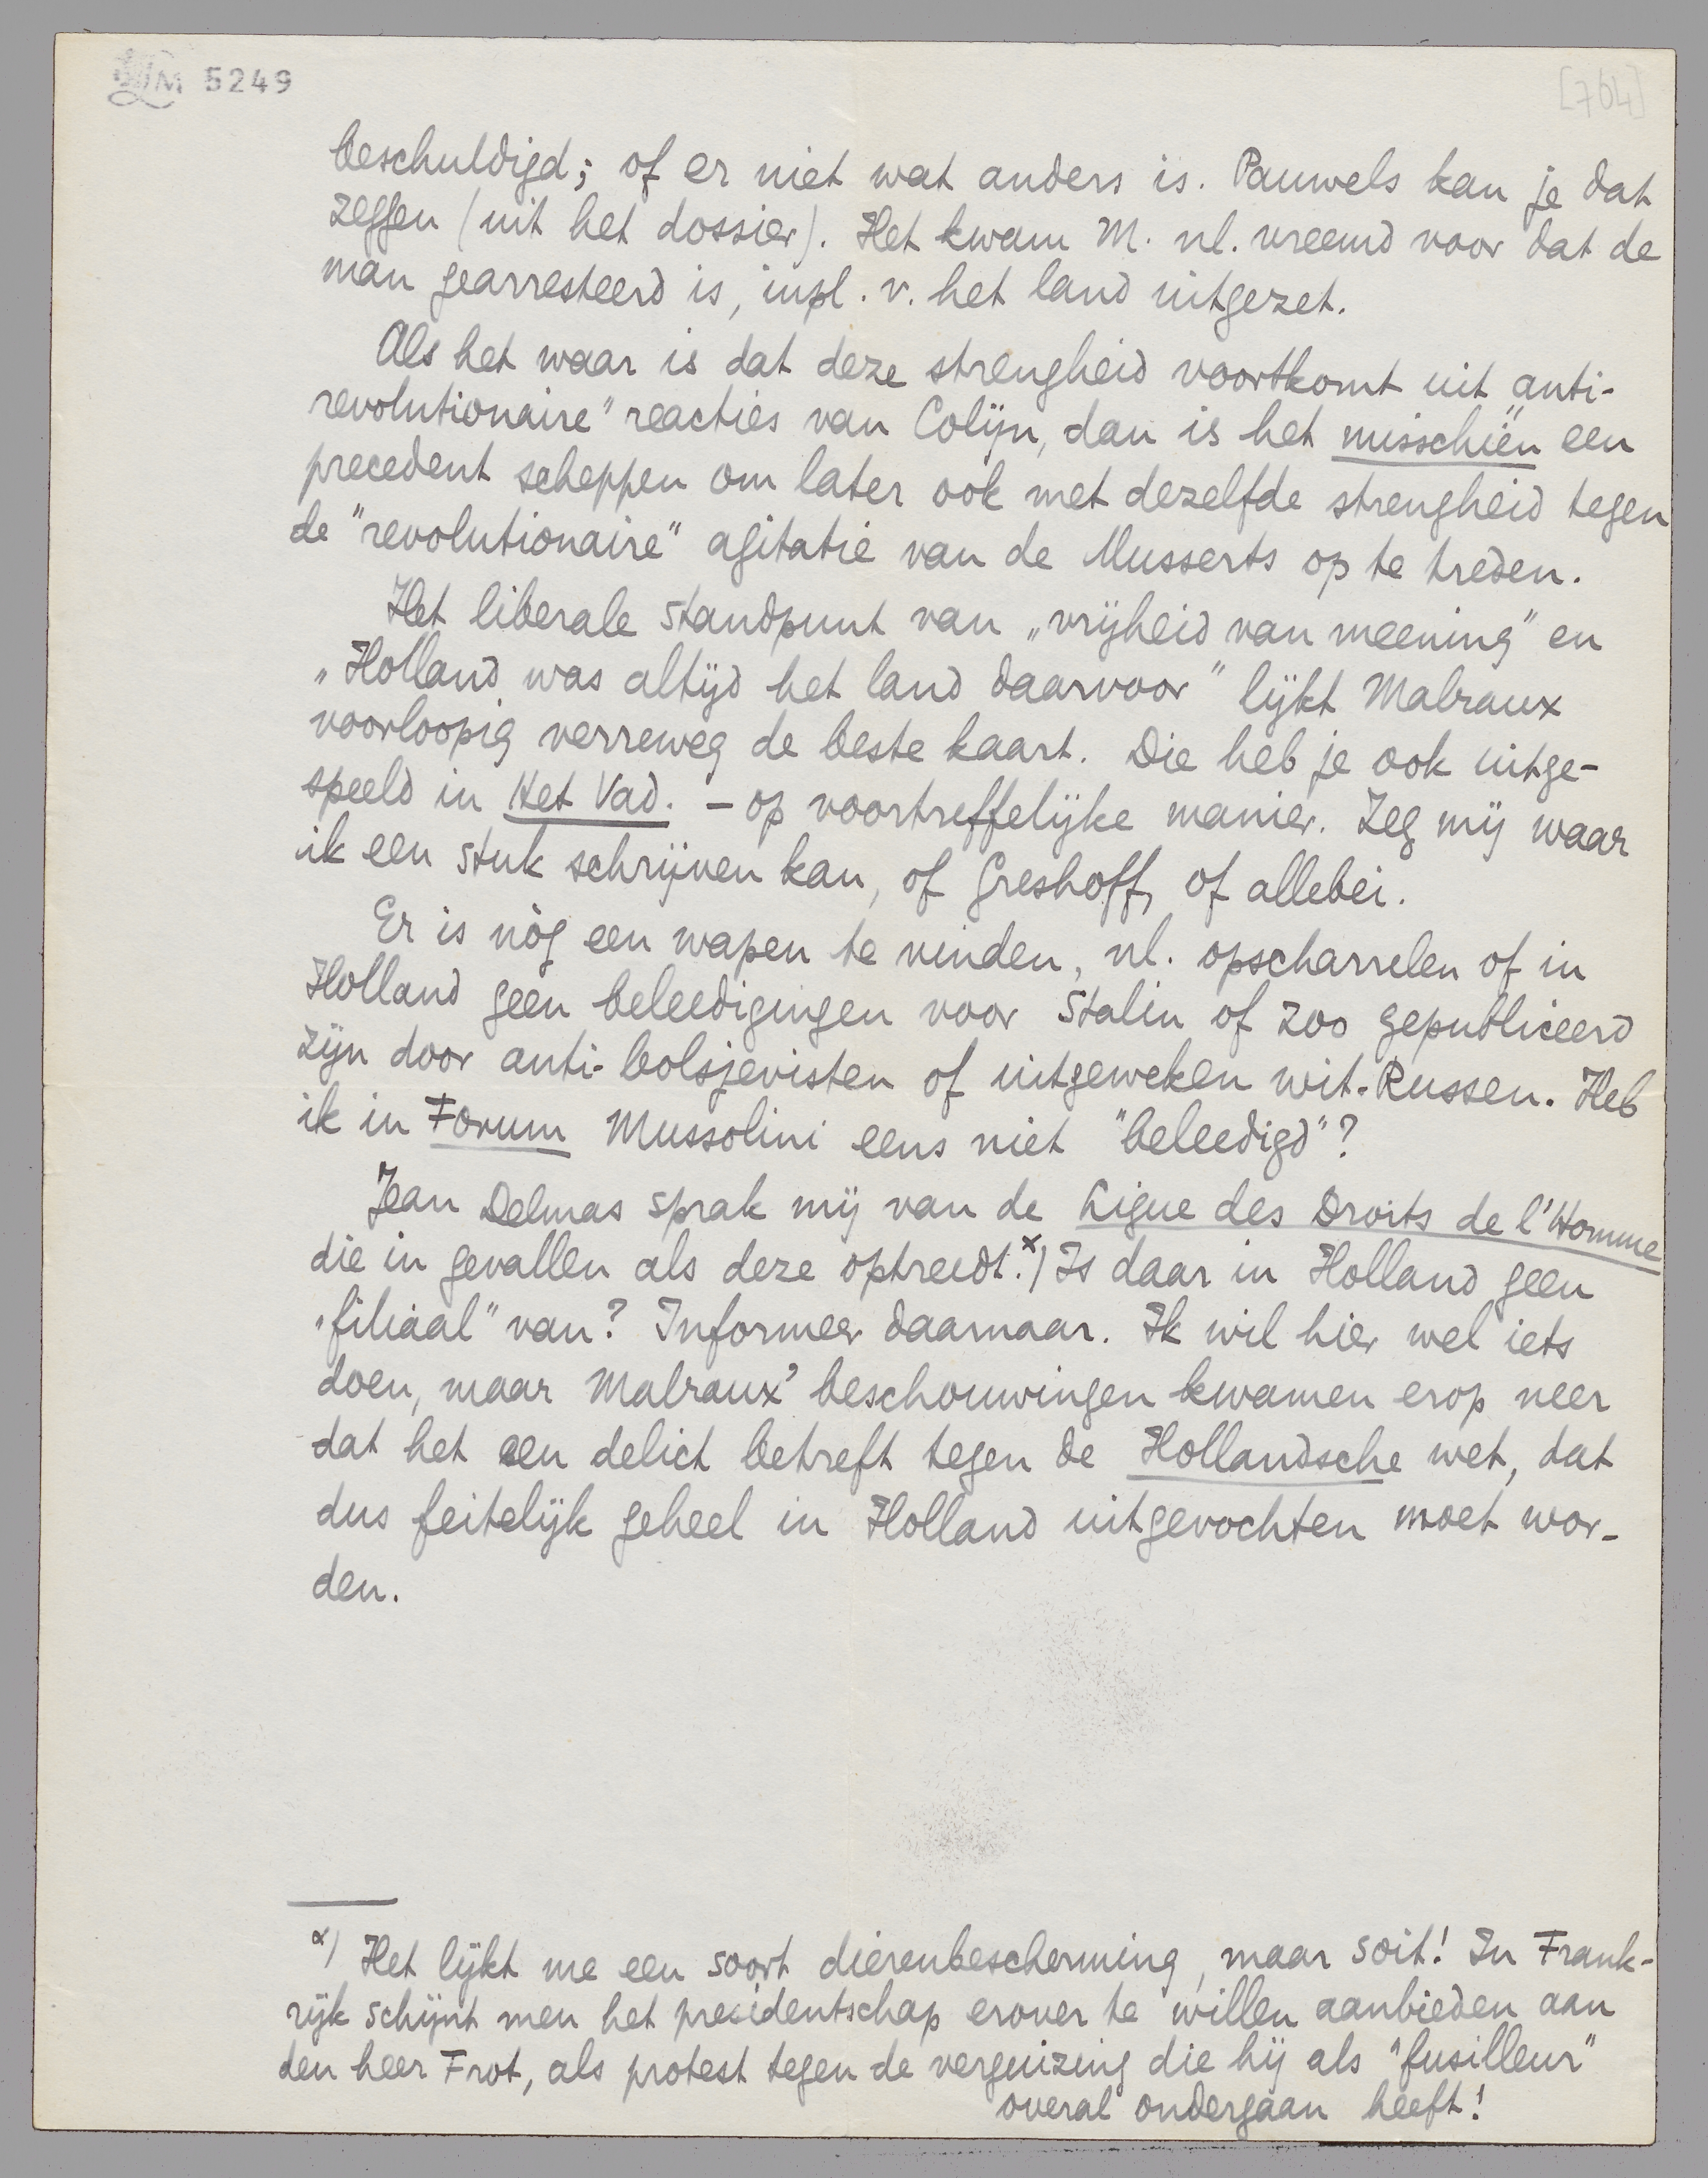 LM 5249
[764]
beschuldigd; of er niet wat anders is. Pauwels kan je dat
zeggen (uit het dossier). Het kwam M. nl. vreemd voor dat de
man gearresteerd is, inpl. v. het land uitgezet.
Als het waar is dat deze strengheid voortkomt uit „anti-
revolutionaire" reacties van Colijn, dan is het misschien een
precedent scheppen om later ook met dezelfde strengheid tegen
de "revolutionaire" agitatie van de Musserts op te treden.
Het liberale standpunt van „vrijheid van meening" en
„Holland was altijd het land daarvoor" lijkt Malraux
voorloopig verreweg de beste kaart. Die heb je ook uitge-
speeld in Het Vad. – op voortreffelijke manier. Zeg mij waar
ik een stuk schrijven kan, of Greshoff, of allebei.
Er is nòg een wapen te vinden, nl. opscharrelen of in
Holland geen beleedigingen voor Stalin of zoo gepubliceerd
zijn door anti-bolsjevisten of uitgeweken wit-Russen. Heb
ik in Forum Mussolini eens niet "beleedigd"?
Jean Delmas sprak mij van de Ligue des Droits de l'Homme
die in gevallen als deze optreedt.x) Is daar in Holland geen
„filiaal" van? Informeer daarnaar. Ik wil hier wel iets
doen, maar Malraux' beschouwingen kwamen erop neer
dat het een delict betreft tegen de Hollandsche wet, dat
dus feitelijk geheel in Holland uitgevochten moet wor-
den.
x) Het lijkt me een soort dierenbescherming, maar soit! In Frank-
rijk schijnt men het presidentschap erover te willen aanbieden aan
den heer Frot, als protest tegen de verguizing die hij als "fusilleur"
overal ondergaan heeft!